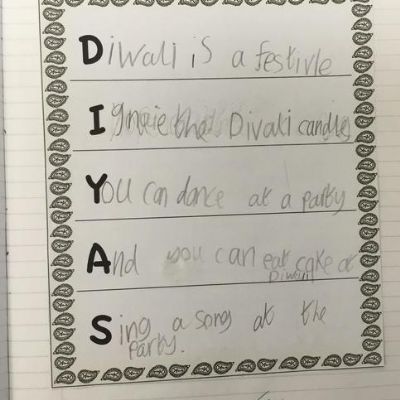 Diwali is a festivle
Ignaie the Divali candles
You can dance at a party
And you can eat cake at
Diwali
Sing a song at the
Party.